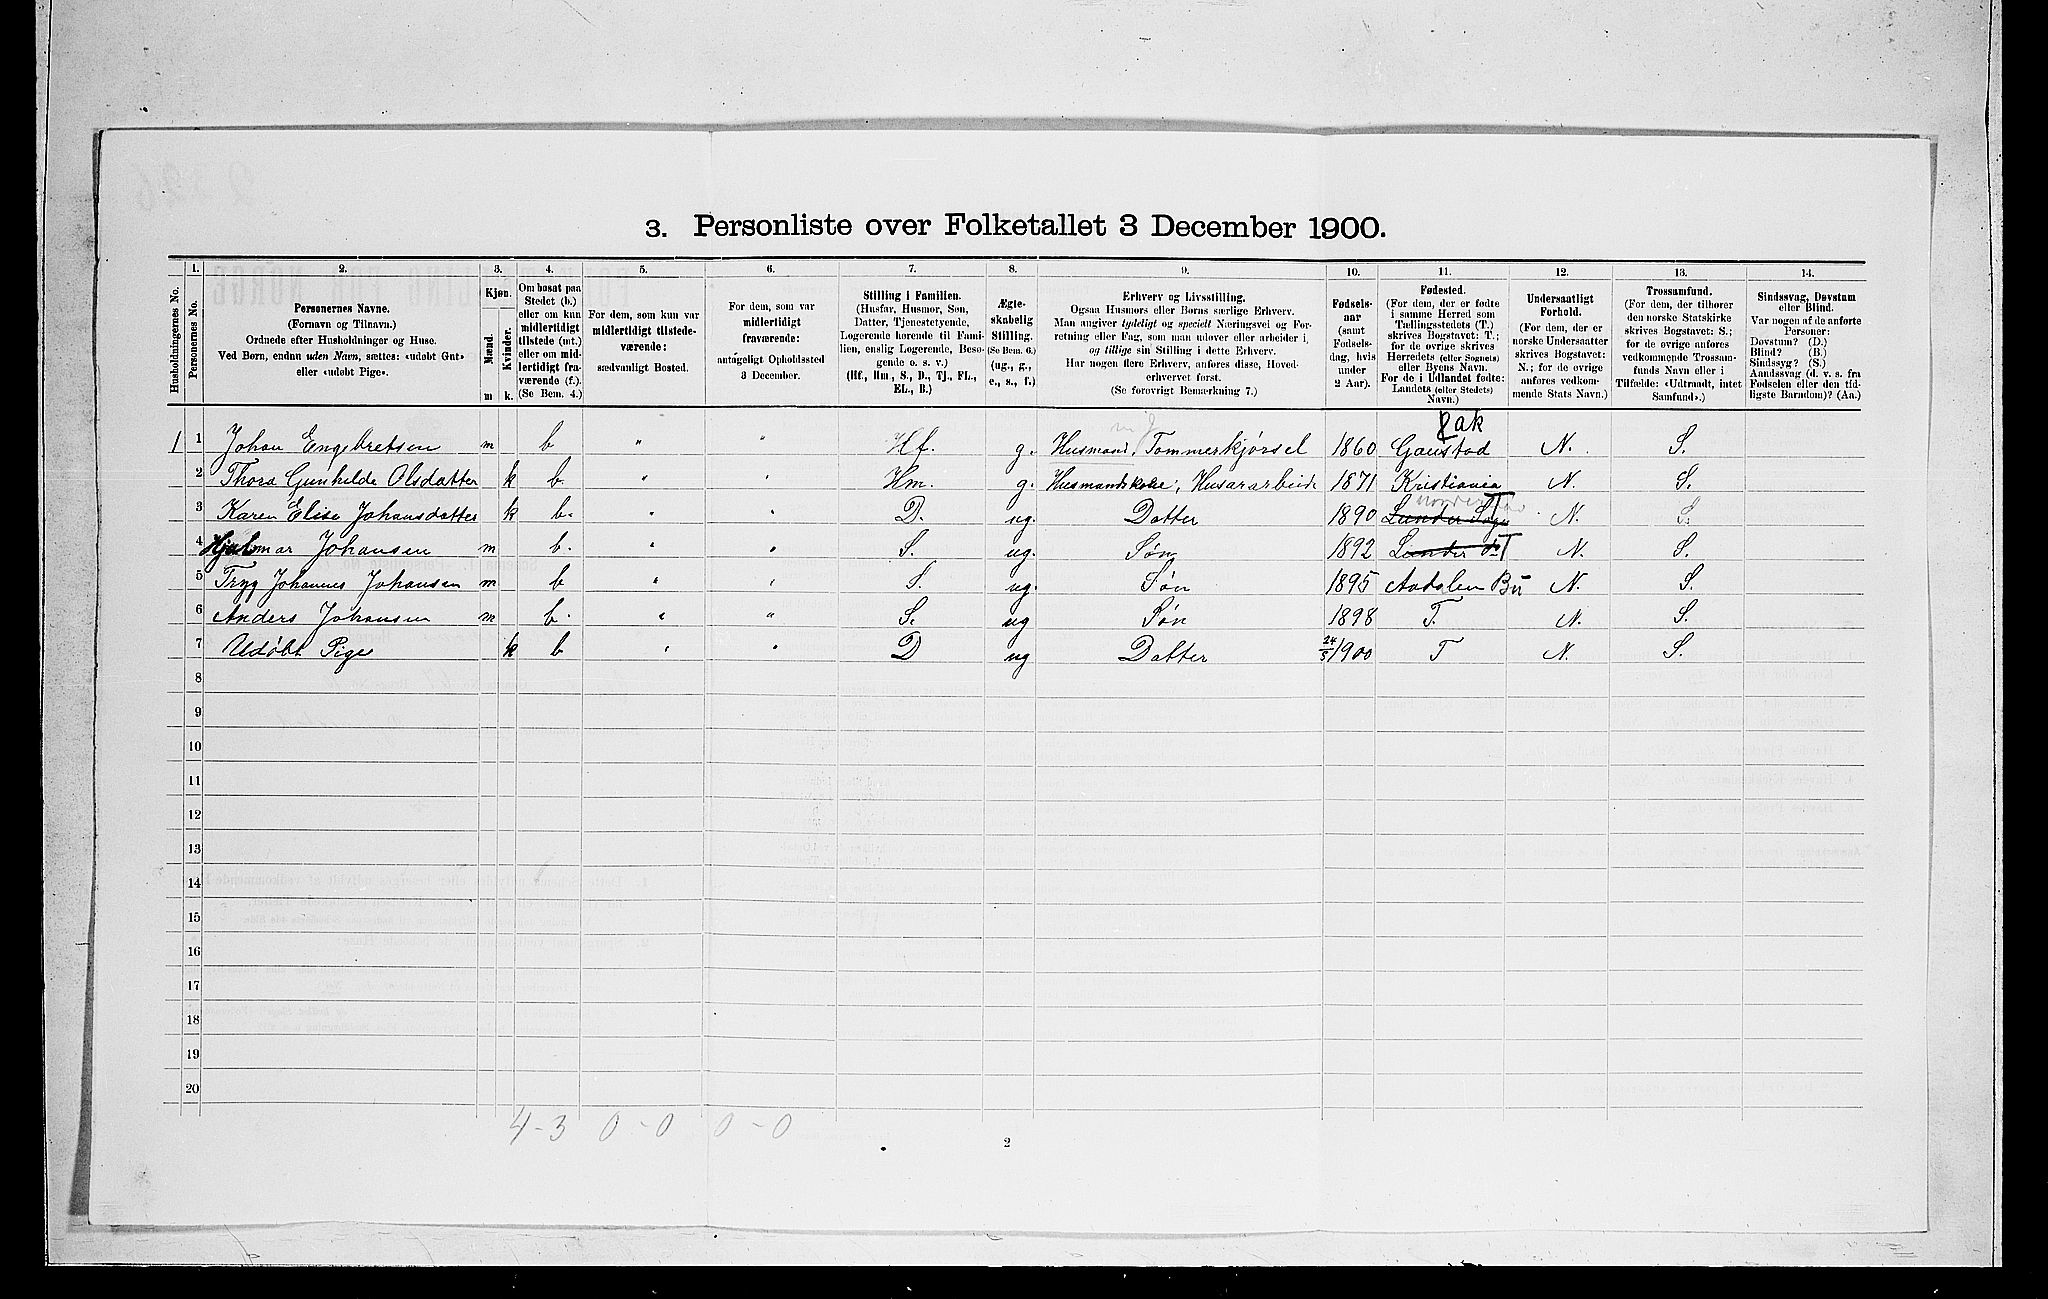 3. Personliste over Folketallet 3 December 1900.
1. 2. 3. 4. 5. 6. 7. 8. 9. 10. 11. 12. 13. 14.
Husholdningernes No.
Personernes No.
Personernes Navne.
(Fornavn og Tilnavn.)
Ordnede efter Husholdninger og Huse.
Ved Børn, endnu uden Navn, sættes: «udøbt Gut»
eller «udøbt Pige».
Kjøn.
Mænd.
Kvinder.
m k.
Om bosat paa
Stedet (b.)
eller om kun
midlertidigt
tilstede (mt.)
eller om mid-
lertidigt fra-
værende (f.).
(Se Bem. 4.)
For dem, som kun var
midlertidigt tilstede-
værende:
sædvanligt Bosted.
For dem, som var
midlertidigt
fraværende:
antageligt Opholdssted
3 December.
Stilling i Familien.
(Husfar, Husmor, Søn,
Datter, Tjenestetyende,
Logerende hørende til Fami-
lien, enslig Logerende, Besø-
gende o. s. v.)
(Hf., Hm., S., D., Tj., FL.,
EL., B.)
Ægte-
skabelig
Stilling.
(Se Bem. 6.)
(ug., g.,
e., s., f.)
Erhverv og Livsstilling.
Ogsaa Husmors eller Børns særlige Erhverv.
Man angiver tydeligt og specielt Næringsvei og For-
retning eller Fag, som man udøver eller arbeider i,
og tillige sin Stilling i dette Erhverv.
Har nogen flere Erhverv, anføres disse, Hoved-
erhvervet først.
(Se forøvrigt Bemærkning 7.)
Fødsels-
aar
(samt
Fødsels-
dag, hvis
under
2 Aar).
Fødested.
(For dem, der er fødte
i samme Herred som
Tællingsstedets (T.)
skrives Bogstavet: T.;
for de øvrige skrives
Herredets (eller Sognets)
eller Byens Navn.
For de i Udlandet fødte:
Landets (eller Stedets)
Navn.)
Undersaatligt
Forhold.
(For dem, der er
norske Undersaatter
skrives Bogstavet:
N.; for de øvrige
anføres vedkom-
mende Stats Navn.)
Trossamfund.
(For dem, der tilhører
den norske Statskirke
skrives Bogstavet: S.;
for de øvrige anføres
vedkommende Trossam-
funds Navn eller i
Tilfælde: «Udtraadt, intet
Samfund».)
Sindssvag, Døvstum
eller Blind.
Var nogen af de anførte
Personer:
Døvstum? (D.)
Blind? (B.)
Sindssyg? (S.)
Aandssvag (d. v. s. fra
Fødselen eller den tid-
ligste Barndom)? (Aa.)
1 1 Johan Engebretsen m b " " Hf. g. Husmand, Tømmerkjørsel 1860 Gaustad N. S.
2 Thora Gunhilde Olsdatter k b. " " Hm. g. Husmandskone, Husararbeide 1871 Kristiania N. S.
3 Karen Elise Johansdatter k b. " " D. ug. Datter 1890 Lunder Sogn T N. S.
4 Hjalmar Johansen m b. " " S. ug. Søn 1892 Lunder do T N. S.
5 Tryg Johannes Johansen m b " " S. ug. Søn 1895 Aadalen Bu N. S.
6 Anders Johansen m b. " " S. ug Søn 1898 T. N. S.
7 Udøbt Pige k b " " D ug Datter 24/5 1900 T N. S.
8
9
10
11
12
13
14
15
16
17
18
19
20
4-3 0-0 0-0
2